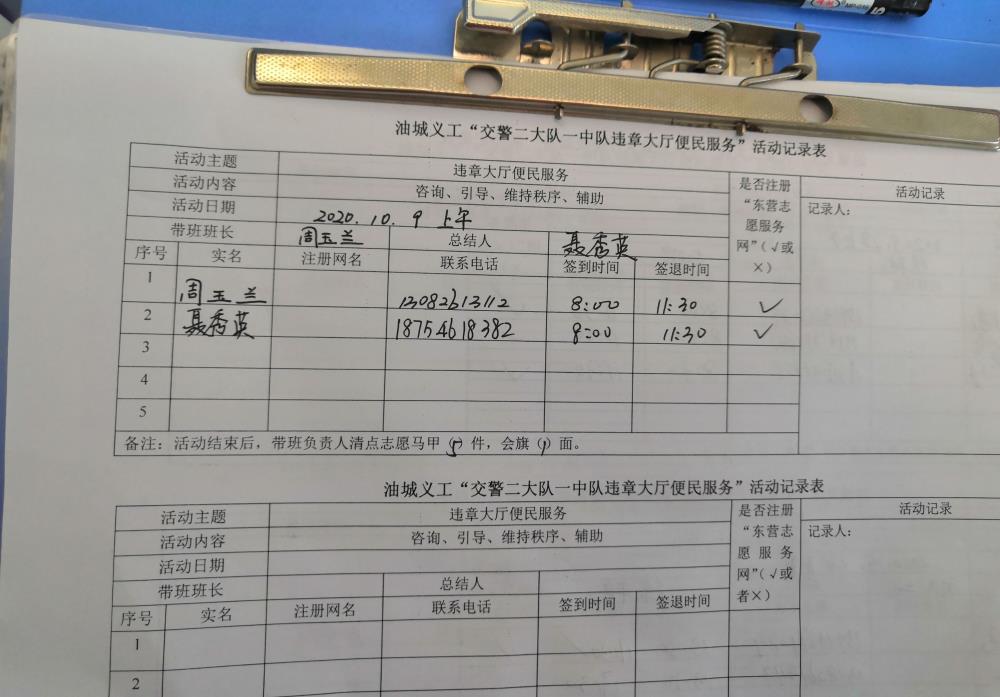 油城义工“交警二大队一中队违章大厅便民服务”活动记录表
活动主题 违章大厅便民服务 是否注册“东营志愿服务网”(√或×) 活动记录
活动内容 咨询、引导、维持秩序、辅助 记录人:
活动日期 2020.10.9 上午
带班班长 周玉兰 总结人 聂秀英
序号 实名 注册网名 联系电话 签到时间 签退时间
1 周玉兰 13082613112 8:00 11:30 ✓
2 聂秀英 18754618382 8:00 11:30 ✓
3
4
5
备注:活动结束后,带班负责人清点志愿马甲(5)件,会旗(1)面。
油城义工“交警二大队一中队违章大厅便民服务”活动记录表
活动主题 违章大厅便民服务 是否注册“东营志愿服务网”(√或者×) 活动记录
活动内容 咨询、引导、维持秩序、辅助 记录人:
活动日期
带班班长 总结人
序号 实名 注册网名 联系电话 签到时间 签退时间
1
2